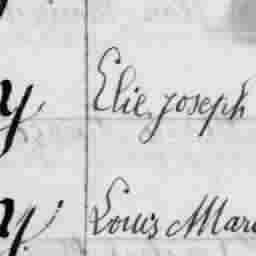 y, Elie, joseph
y. Louis Mar